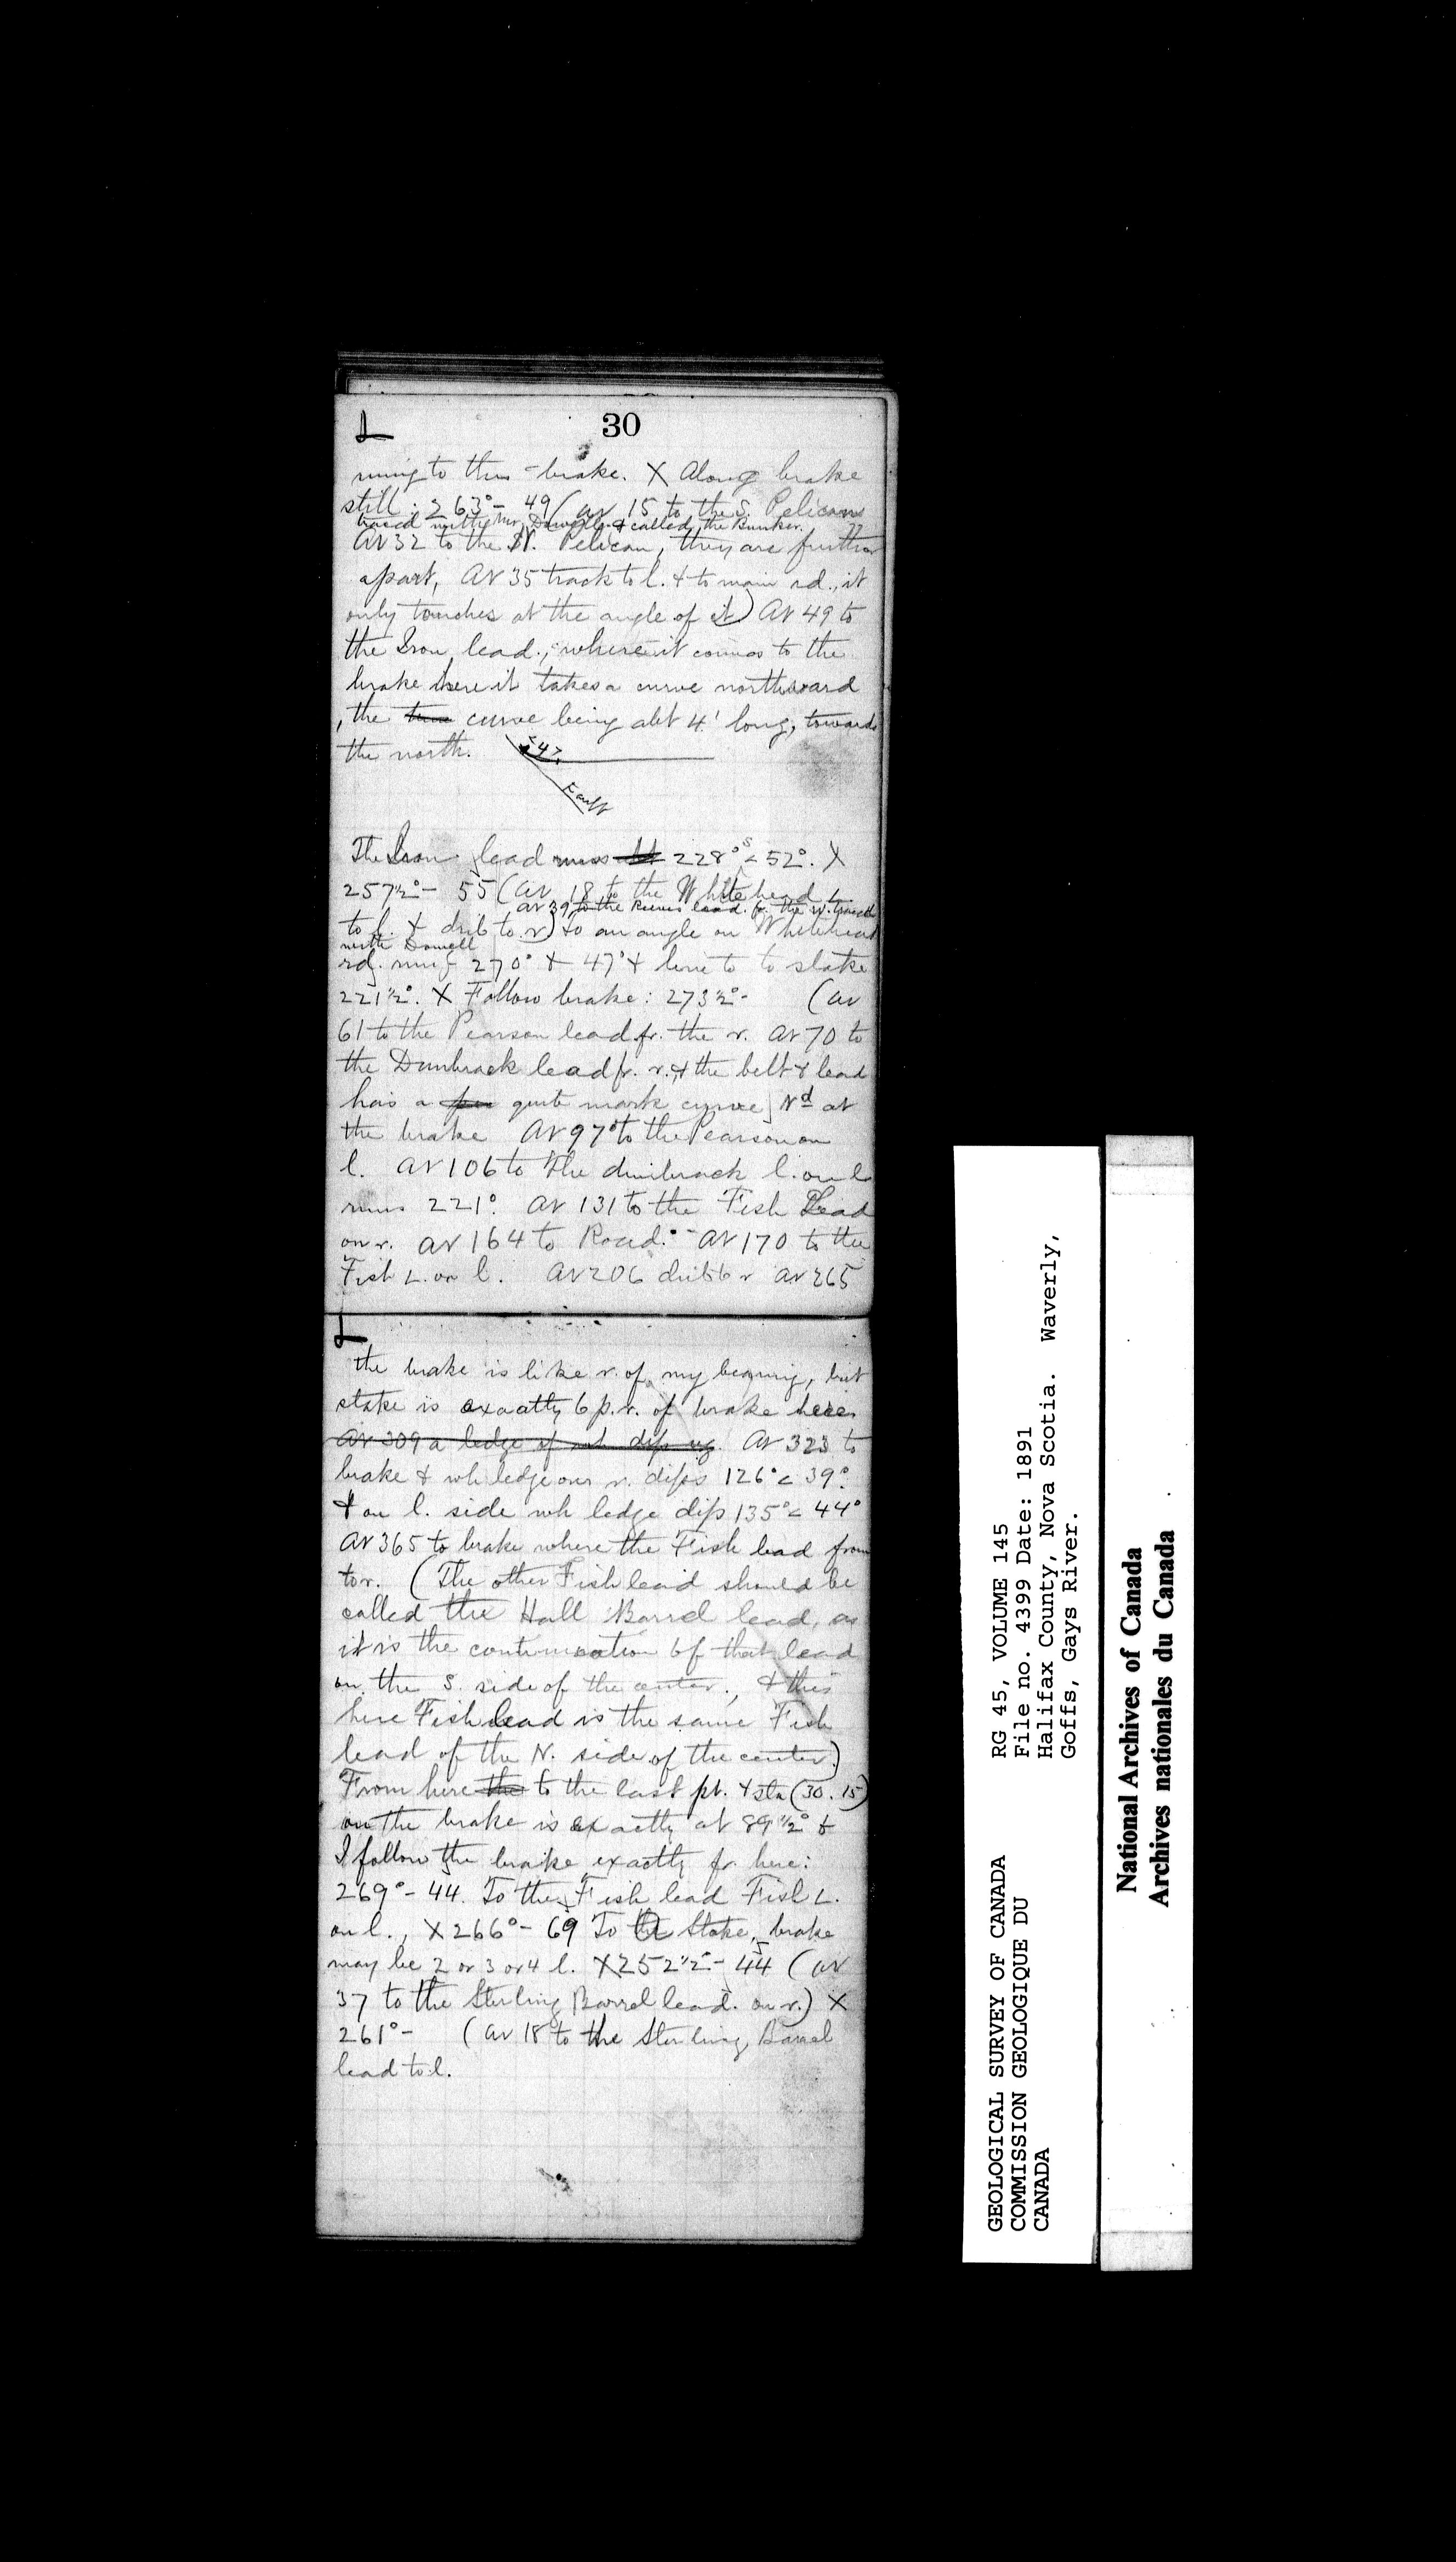 30
runing to this brake. X Along brake
still: 263° - 49 (at 15 to the S. Pelican
traced with Mr. Dowell & called the Bunker.
At 32 to the N. Pelican, they are further
apart, At 35 track to l. & to main rd., it
only touches at the angle of it) At 49 to
the Iron lead., where it comes to the
brake here it takes a curve northward
, the curve being abt 4' long, towards
the north.
<4>
Fault
The Iron lead runs 228° S < 52°. X
257½° - 55 (at 18 to the Whitehead L.
at 39 to the lead. fr. the w.
to l. & drib to r) to an angle on Whitehead
with Dowell
rd. runs 270° & 47° & line to to stake
221½°. X Follow brake: 273½° - (at
61 to the Pearson lead fr. the r. At 70 to
the Dunbrack lead fr. r. & the belt & lead
has a quite mark curve Nd at
the brake At 97 to the Pearson on
l. at 106 to the dunbrack l. on l
runs 221°. At 131 to the Fish Lead
on r. at 164 to Road. - At 170 to the
Fish L. on l. At 206 drib to r at 265
the brake is like r. of my begining, but
stake is exactly 6 p. r. of brake here
At 309 a ledge of wh dips ug. At 323 to
brake & wh ledge on r. dips 126° < 39°.
& on l. side wh ledge dip 135° < 44°
At 365 to brake where the Fish lead from
to r. (The other Fish lead should be
called the Hall Barrel lead, as
it is the continuation of that lead
on the S. side of the center., & this
here Fish lead is the same Fish
lead of the N. side of the center.)
From here the to the last pt. & sta (30. 15)
on the brake is exactly at 89½° &
I follow the brake exactly fr. here:
269° - 44. To the Fish lead Fish L.
on l., X 266° - 69 To the Stake, brake
may be 2 or 3 or 4 l. X 252½° - 44 (at
37 to the Sterling Barrel lead. on r.) X
261° - (at 18 to the Sterling Barrel
lead to l.
GEOLOGICAL SURVEY OF CANADA
COMMISSION GEOLOGIQUE DU
CANADA
RG 45, VOLUME 145
File no. 4399 Date: 1891
Halifax County, Nova Scotia. Waverly,
Goffs, Gays River.
National Archives of Canada
Archives nationales du Canada